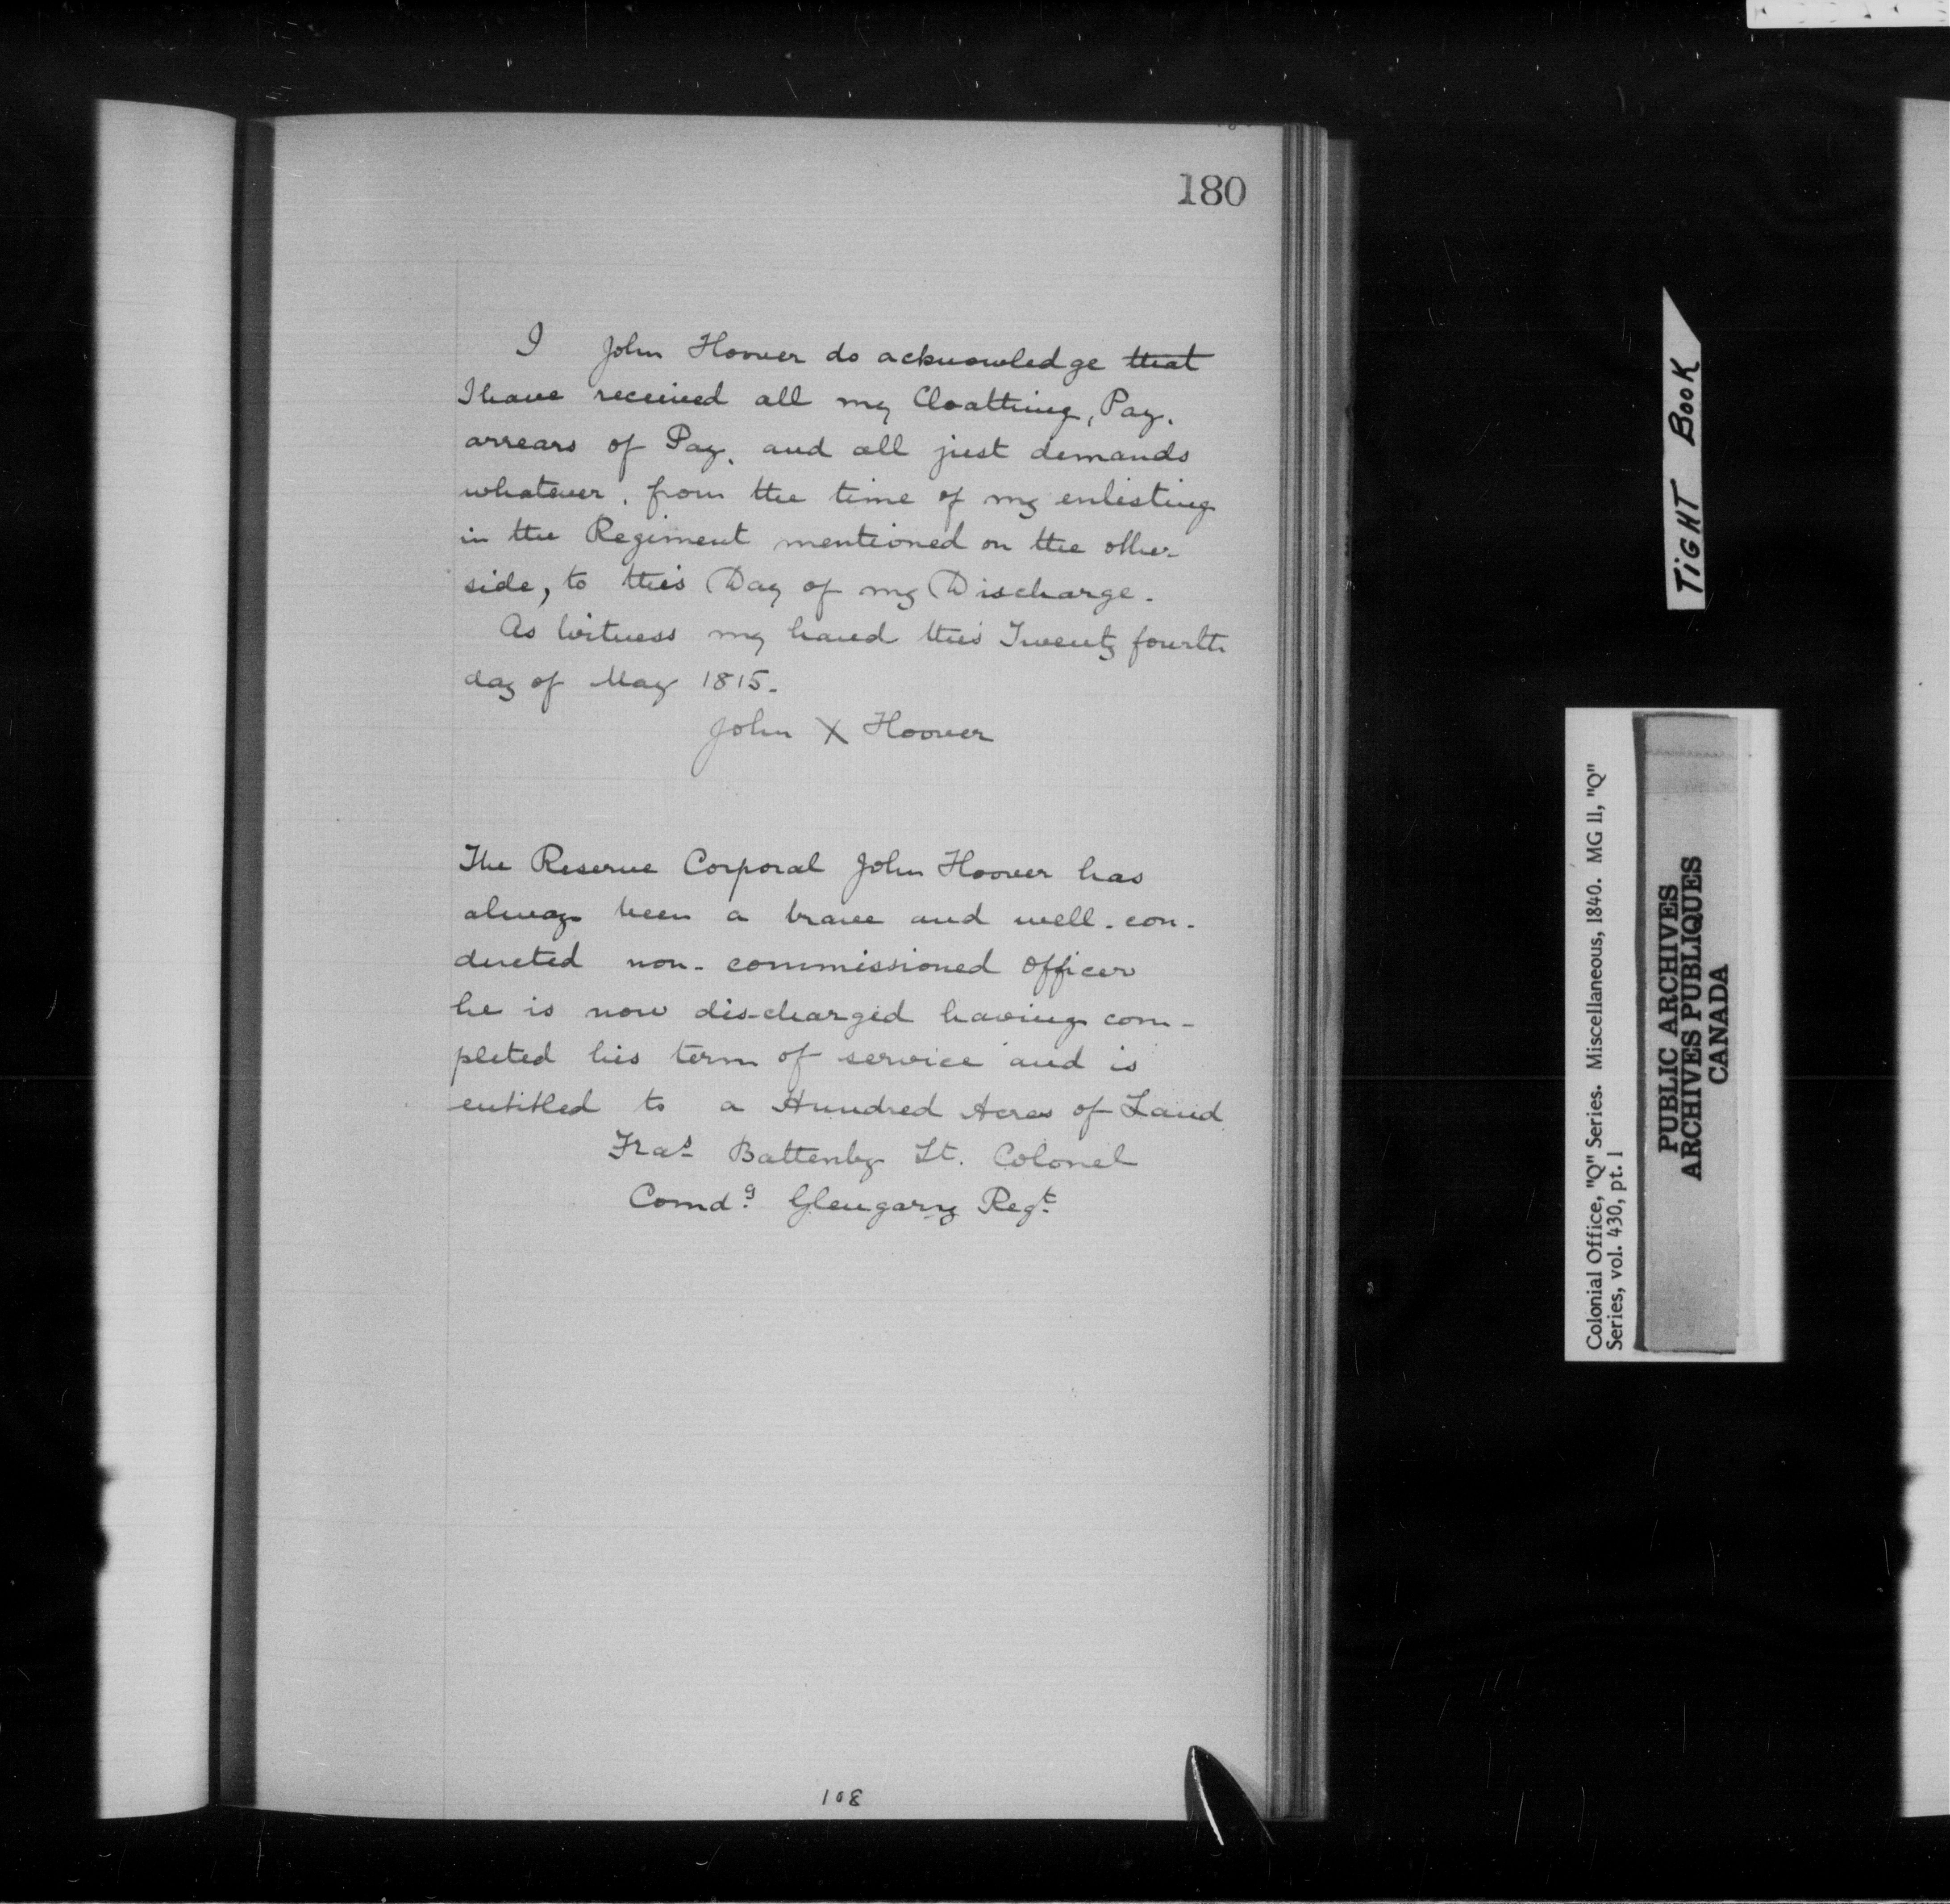 180
I John Hoover do acknowledge that
I have received all my Cloathing, Pay,
arrears of Pay, and all just demands
whatever, from the time of my enlisting
in the Regiment mentioned on the other
side, to this Day of my Discharge.
As Witness my hand this Twenty fourth
day of May 1815.
John X Hoover
The Reserve Corporal John Hoover has
always been a brave and well-con-
ducted non-commissioned officer
he is now discharged having com-
pleted his term of service and is
entitled to a Hundred Acres of Land
Fras Battenby Lt. Colonel
Comdg Glengary Regt
108
TIGHT BOOK
Colonial Office, "Q" Series. Miscellaneous, 1840. MG 11, "Q"
Series, vol. 430, pt. 1
PUBLIC ARCHIVES
ARCHIVES PUBLIQUES
CANADA